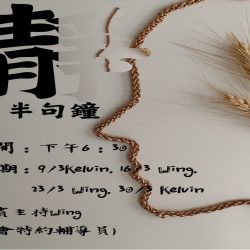 半句鐘
間：下午6：30
期：9/3Kelvin. 16/3 Wing.
23/3 Wing. 30/3 Kelvin
主持Wing
會特約輔導員）